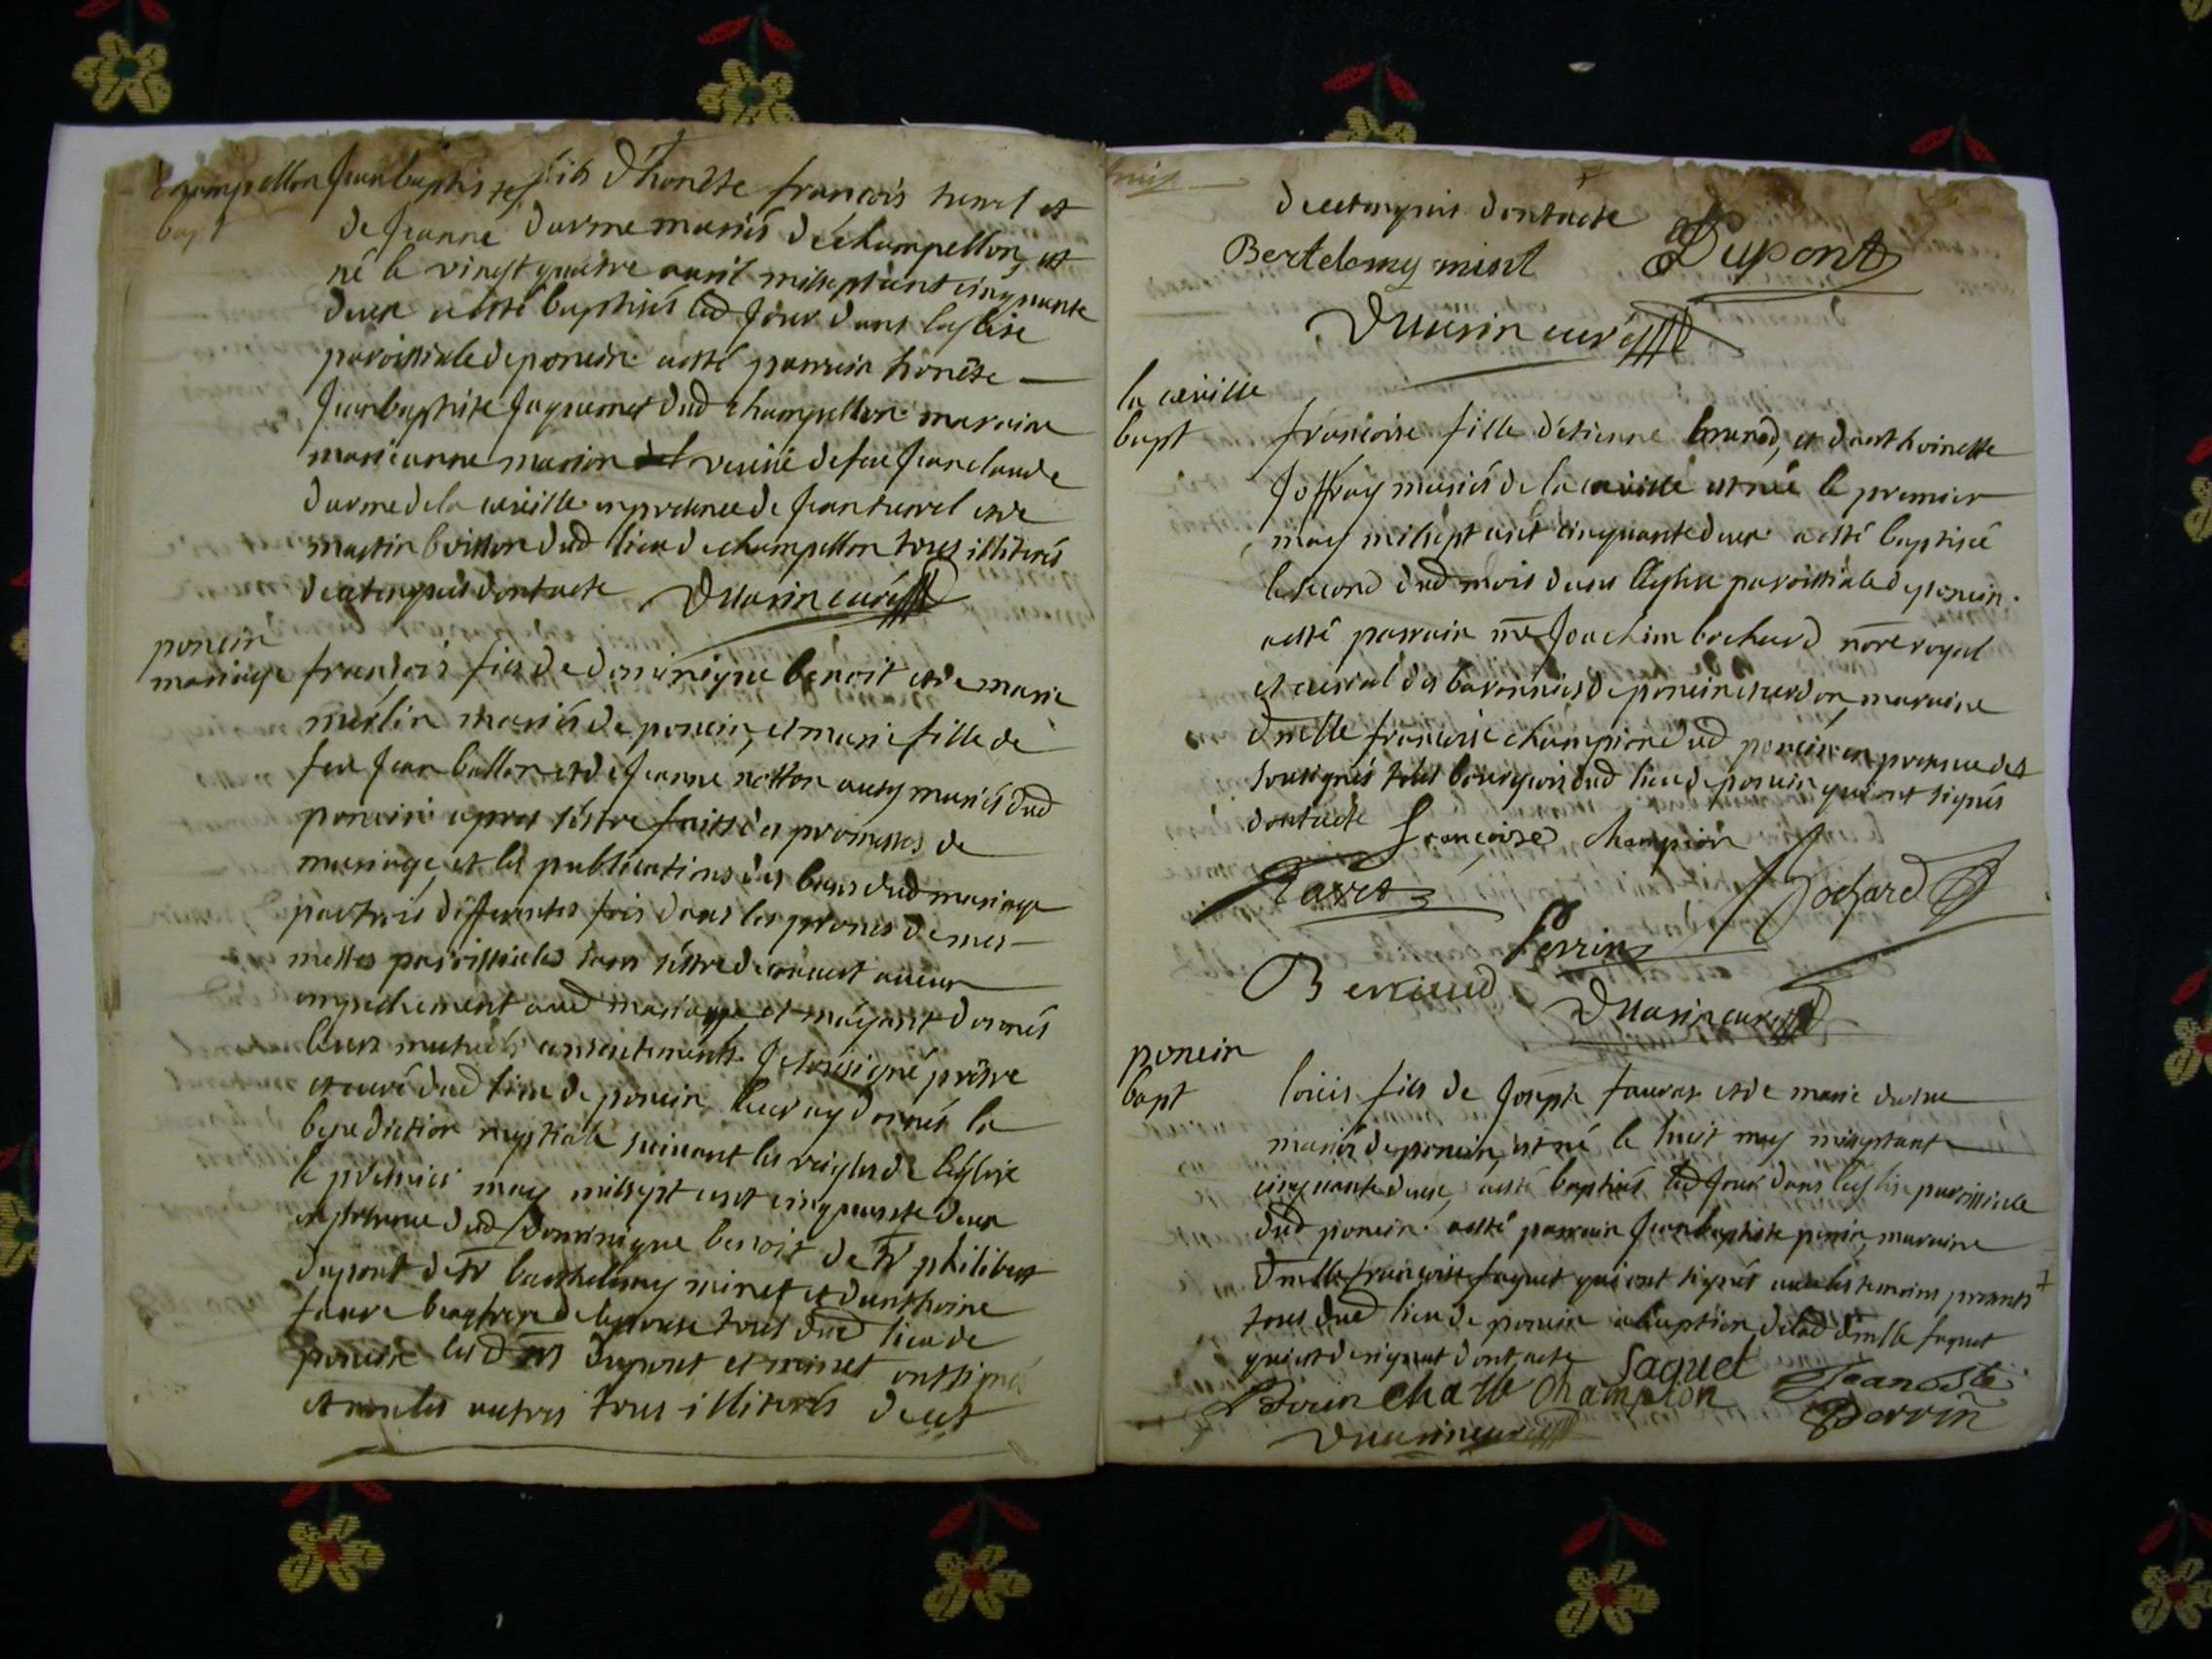 champellon Jeanbaptiste fils d'honête françois turrel et
bapt de Jeanne darme mariés de champellon, est
né le vingt quatre avril millseptcent cinquante
deux a esté baptisés led Jour dans leglise
paroissiale de poncin. a esté parrain honête
Jeanbaptiste Jaquemet dud champellon. maraine
marieanne marion veuve de feu Jeanclaude
darme de la cuëille. en presence de Jean turrel et de
martin boisson dud lieu de champellon tous illiterés
de ce enquis dont acte Duarin curé
poncin
mariage françois fils de dominique benoit et de marie
merlin mariés de poncin, et marie fille de
feu Jean ballan et de Jeanne notton ausy mariés dud
poncin. apres s'éstre faits des promesses de
mariage, et les publications des bans dud mariage
par trois differentes fois dans les prones de mes
messes paroissiales sans s'éstre decouvert aucun
empechement aud mariage, et m'ayant donnés
leurs mutuels consentements. Je soussigné prêtre
et curé dud lieu de poncin, leur ay donnés la
benediction nuptiale suivant les reigles de l'églixe
le premier may millsept cent cinquante deux
en presence dud dominique benoit de sr philibert
dupont de sr barthelemy minet et d'anthoine
faure beaufrere de lepouse tous dud lieu de
poncin. lesd srs dupont et minet ont signé
et non les autres tous illiterés de cet
de ce enquis dont acte
Bertelemy minet Dupont
Duarin curé
la cueille
bapt françoise fille d'étienne brunod, et d'anthoinette
Joffray mariés de la cueille est née le premier
may millsept cent cinquante deux. a esté baptisée
le second dud mois dans l'églixe paroissiale de poncin.
a esté parrain me Joachim bochard nore royal
et curial des baronnies de poncin et cerdon, maraine
dmelle francoise champion dud poncin. en presence des
soussignés tous bourgeois dud lieu de poncin qui ont signés
dont acte françoise champion
Ravet Bochard
Perrin
Berraud
Duarin curé
poncin
bapt loüis fils de Joseph fauvas et de marie darme
mariés de poncin, est né le huit may millseptcent
cinquante deux, a esté baptisés led Jour dans leglise paroissiale
dud poncin. a esté parrain Jeanbaptiste perrin, maraine
dmelle francoise faguet qui ont signés avec les temoins presents
tous dud lieu de poncin a l'exeption de lad dmelle faguet
dont acte Saguet
Chatte Champion Jean Bte
Duarin curé Perrin